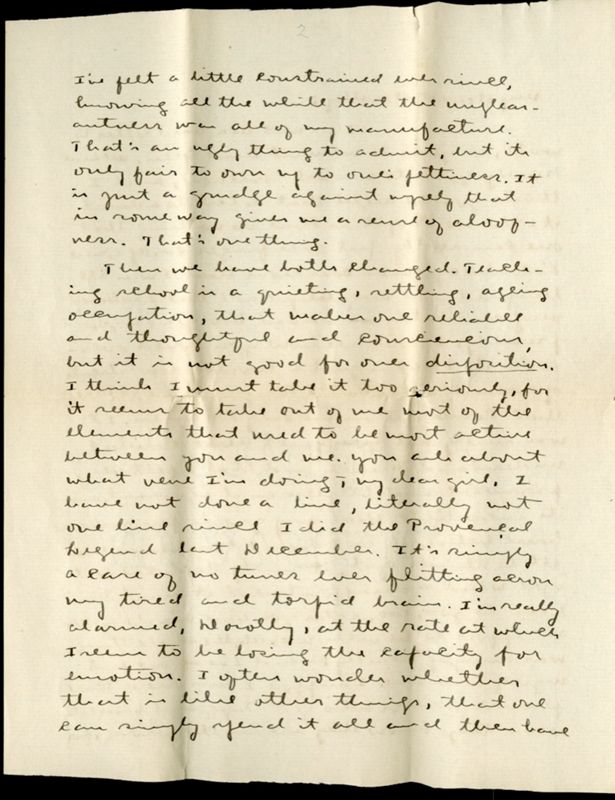 2
I've felt a little constrained ever since,
knowing all the while that the unpleas-
antness was all of my manufacture.
That's an ugly thing to admit, but its
only fair to own up to one's pettiness. It
is just a grudge against myself that
in some way gives me a sense of aloof-
ness. That's one thing.
Then we have both changed. Teach-
ing school is a quieting, settling, ageing
occupation, that makes one reliable
and thoughtful and conscienious,
but it is not good for ones disposition.
I think I must take it too seriously, for
it seems to take out of me most of the
elements that used to be most active
between you and me. You ask about
what verse I'm doing; my dear girl, I
have not done a line, literally not
one line since I did the Provençal
Legend last December. It's simply
a case of no tunes ever flitting across
my tired and torpid brain. I'm really
alarmed, Dorothy, at the rate at which
I seem to be losing the capacity for
emotion. I often wonder whether
that is like other things, that one
can simply spend it all and then have